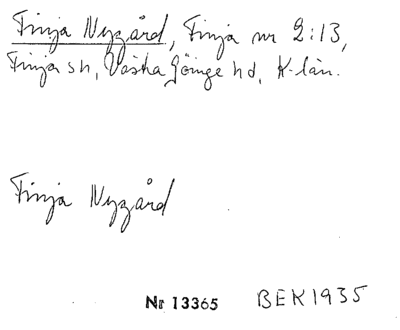 Finja Nygård, Finja nr 2:13,
Finja sn, Västra Göinge hd, K-län.
Finja Nygård
Nr 13365 BEK1935